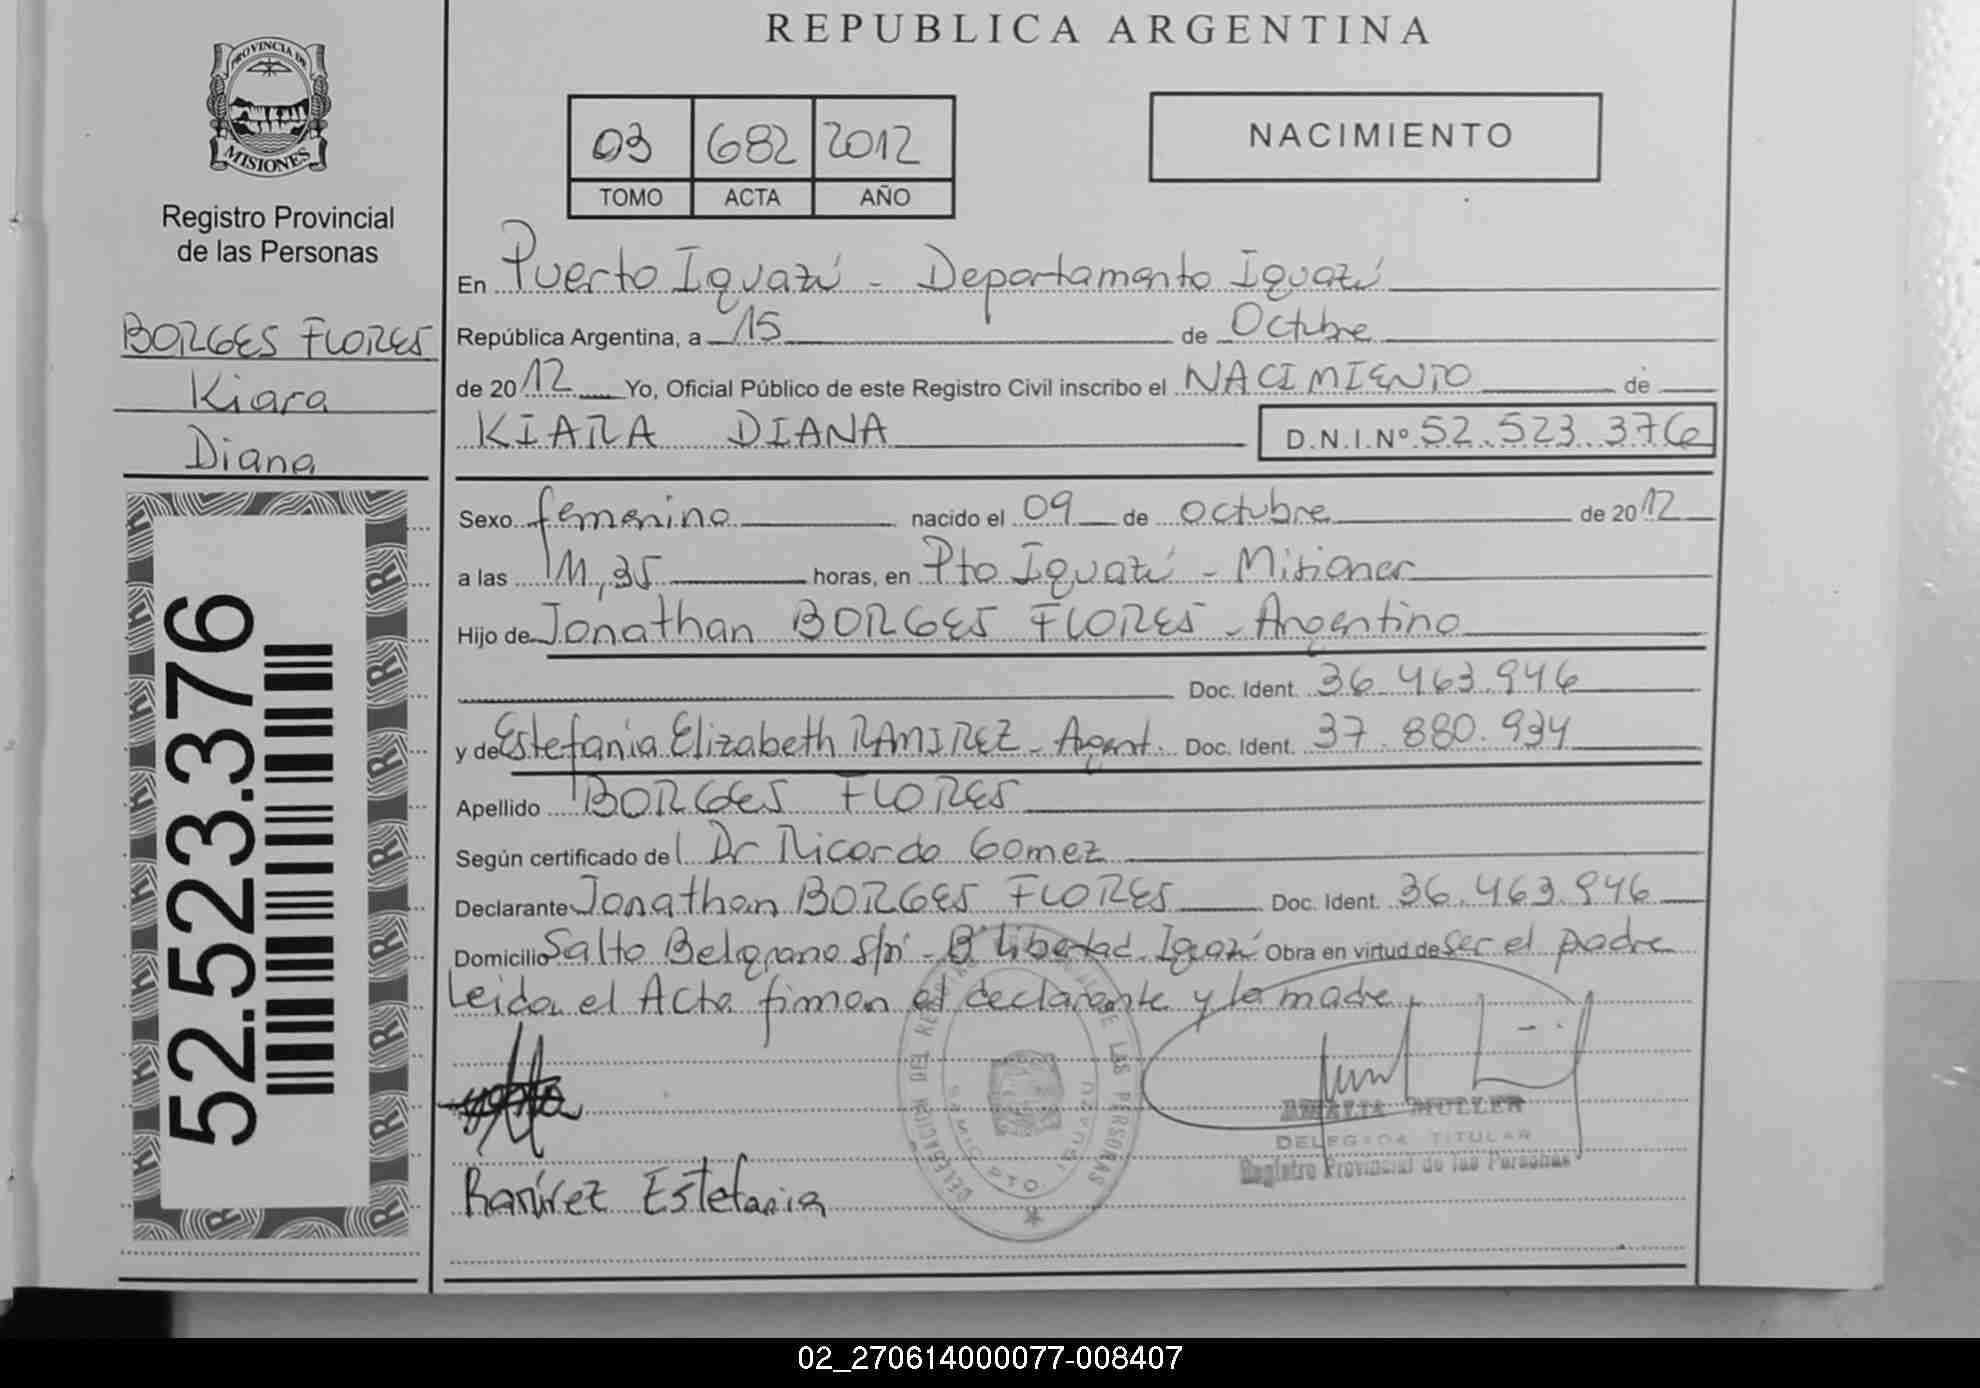 REPUBLICA ARGENTINA
PROVINCIA DE
MISIONES
Registro Provincial
de las Personas
BORGES FLORES
Kiara
Diana
52.523.376
03 682 2012
TOMO ACTA AÑO
NACIMIENTO
En Puerto Iguazú - Departamento Iguazú
República Argentina, a 15 de Octubre
de 2012 Yo, Oficial Público de este Registro Civil inscribo el NACIMIENTO de
KIARA DIANA D.N.I.Nº 52.523.376
Sexo femenino nacido el 09 de octubre de 2012
a las 11,35 horas, en Pto Iguazú - Misiones
Hijo de Jonathan BORGES FLORES - Argentino
Doc. Ident. 36.463.946
y de Estefania Elizabeth RAMIREZ - Argent. Doc. Ident. 37.880.934
Apellido BORGES FLORES
Según certificado del Dr Ricardo Gomez
Declarante Jonathan BORGES FLORES Doc. Ident. 36.463.946
Domicilio Salto Belgrano s/n - Bº libertad Iguazú Obra en virtud de ser el padre
Leida el Acta firman el declarante y la madre
AMALIA MULLER
DELEGADA TITULAR
Registro Provincial de las Personas
DELEGACION DEL REGISTRO DE LAS PERSONAS
PTO IGUAZU
Ramírez Estefania
02_270614000077-008407